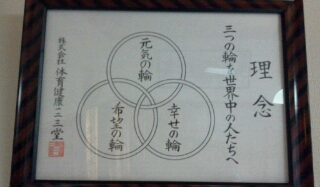 理念
三つの輪を世界中の人たちへ
元気の輪
幸せの輪
希望の輪
株式会社 体育健康一二三堂